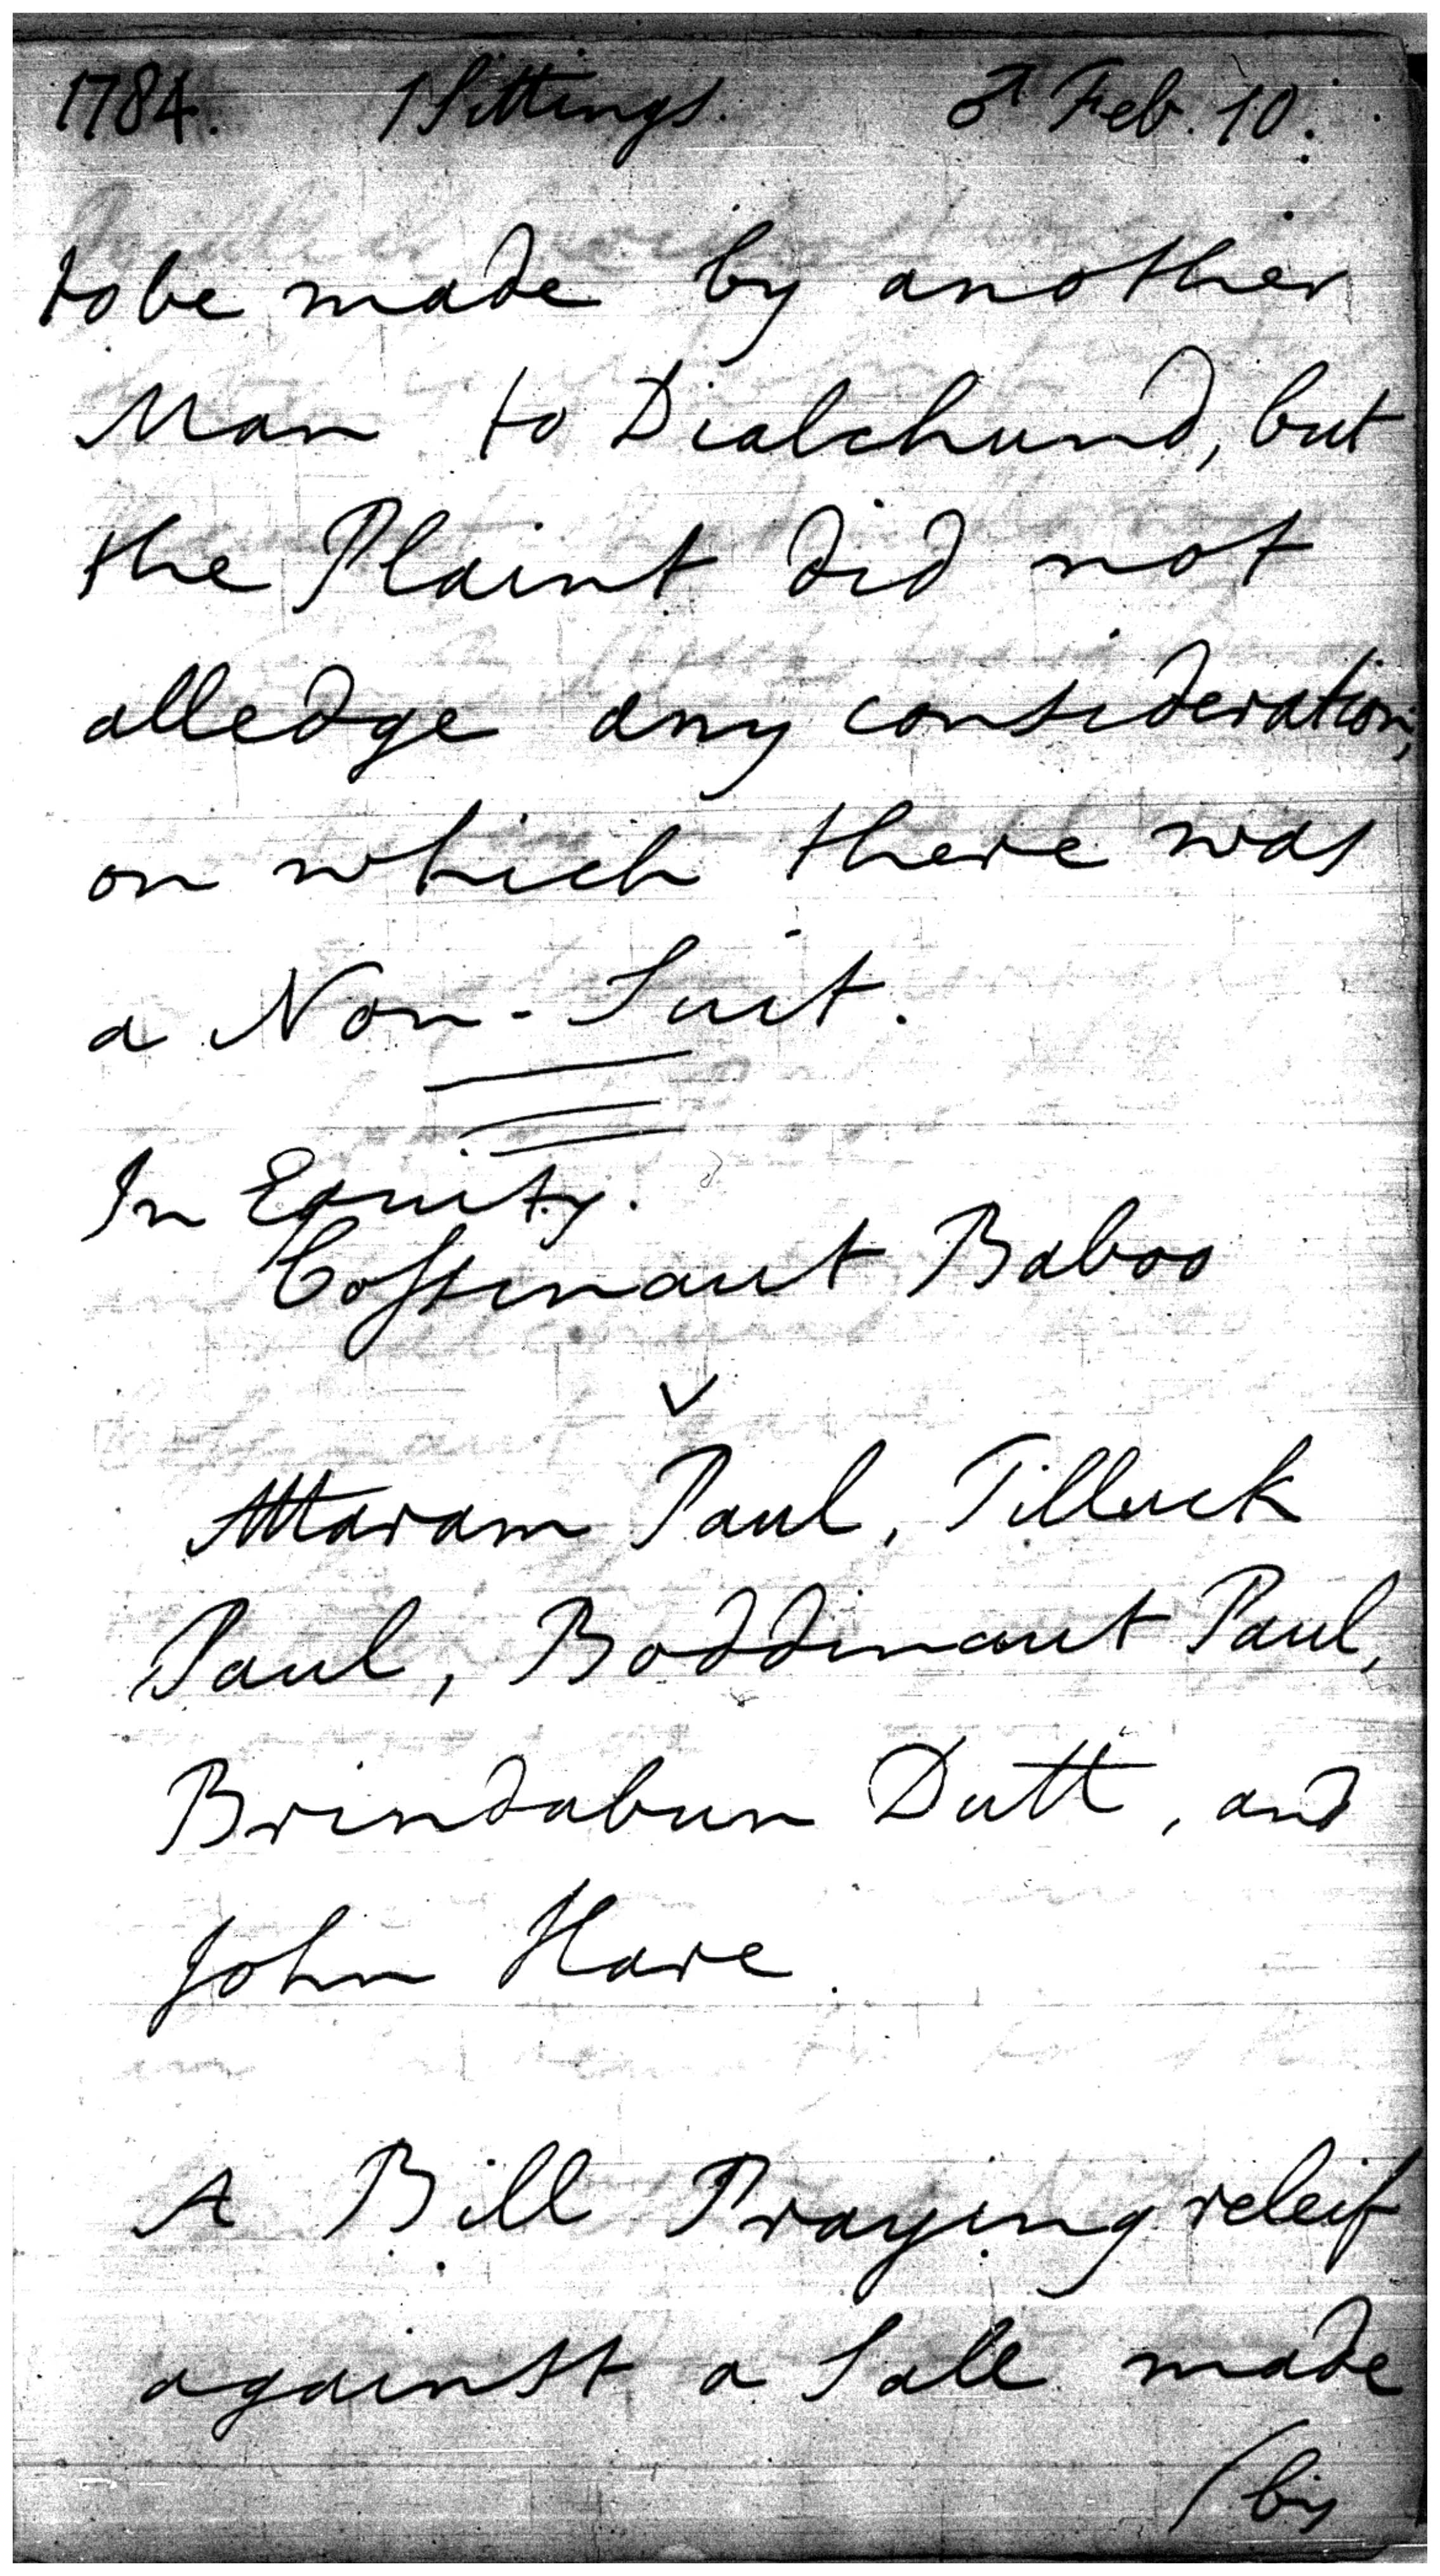 1784. 1 Sittings. ♂ Feb. 10.
to be made by another
Man to Dialchund, but
the Plaint did not
alledge any consideration,
on which there was
a Non-Suit.
In Equity.
Cossinaut Baboo
v
Attaram Paul, Tilluck
Paul, Boddinaut Paul,
Brindabun Dutt, and
John Hare.
A Bill Praying releif
against a Sale made
(by